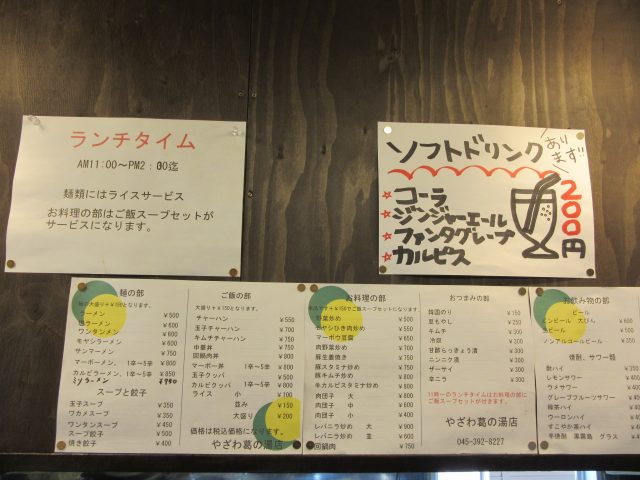 ランチタイム
AM11:00～PM2:00迄
麺類にはライスサービス
お料理の部はご飯スープセットが
サービスになります。
ソフトドリンク
あります!!
コーラ
ジンジャーエール
ファンタグレープ
カルピス
200円
麺の部
ラーメン ¥500
塩ラーメン ¥600
ワンタンメン ¥600
モヤシラーメン ¥650
サンマーメン ¥750
マーボーメン 1辛～5辛 ¥850
カルビラーメン 1辛～5辛 ¥850
スープと餃子
玉子スープ ¥350
ワカメスープ ¥350
ワンタンスープ ¥450
スープ餃子 ¥500
焼き餃子 ¥400
ご飯の部
大盛りは¥150となります。
チャーハン ¥550
玉子チャーハン ¥700
キムチチャーハン ¥700
中華丼 ¥750
回鍋肉丼 ¥800
マーボー丼 1辛～5辛 ¥800
玉子クッパ ¥550
カルビクッパ 1辛～5辛 ¥850
ライス 小 ¥100
並み ¥150
大盛り ¥200
価格は税込価格になります。
お料理の部
単品プラス¥150でご飯スープセットになります。
野菜炒め ¥500
モヤシひき肉炒め ¥500
マーボウ豆腐 ¥600
肉野菜炒め ¥650
豚生姜焼き ¥700
豚スタミナ炒め ¥700
豚キムチ炒め ¥700
牛カルビスタミナ炒め ¥800
肉団子 大 ¥800
肉団子 中 ¥600
肉団子 小 ¥400
レバニラ炒め 大 ¥900
レバニラ炒め 並 ¥600
回鍋肉 ¥750
おつまみの部
韓国のり ¥150
豆もやし ¥250
キムチ ¥300
冷奴 ¥300
甘酢らっきょう漬 ¥300
ニンニク漬 ¥300
ザーサイ ¥300
辛ニラ ¥350
11時～のランチタイムはお料理の部に
ご飯スープセットが付きます。
やざわ葛の湯店
045-392-8227
お飲み物の部
ビール
ビンビール 大びん ¥600
生ビール ¥500
ノンアルコールビール ¥350
焼酎、サワー類
酎ハイ ¥350
レモンサワー ¥400
ウメサワー ¥400
グレープフルーツサワー ¥400
緑茶ハイ ¥400
ウーロンハイ ¥400
すこやか茶ハイ ¥400
芋焼酎 黒霧島 グラス